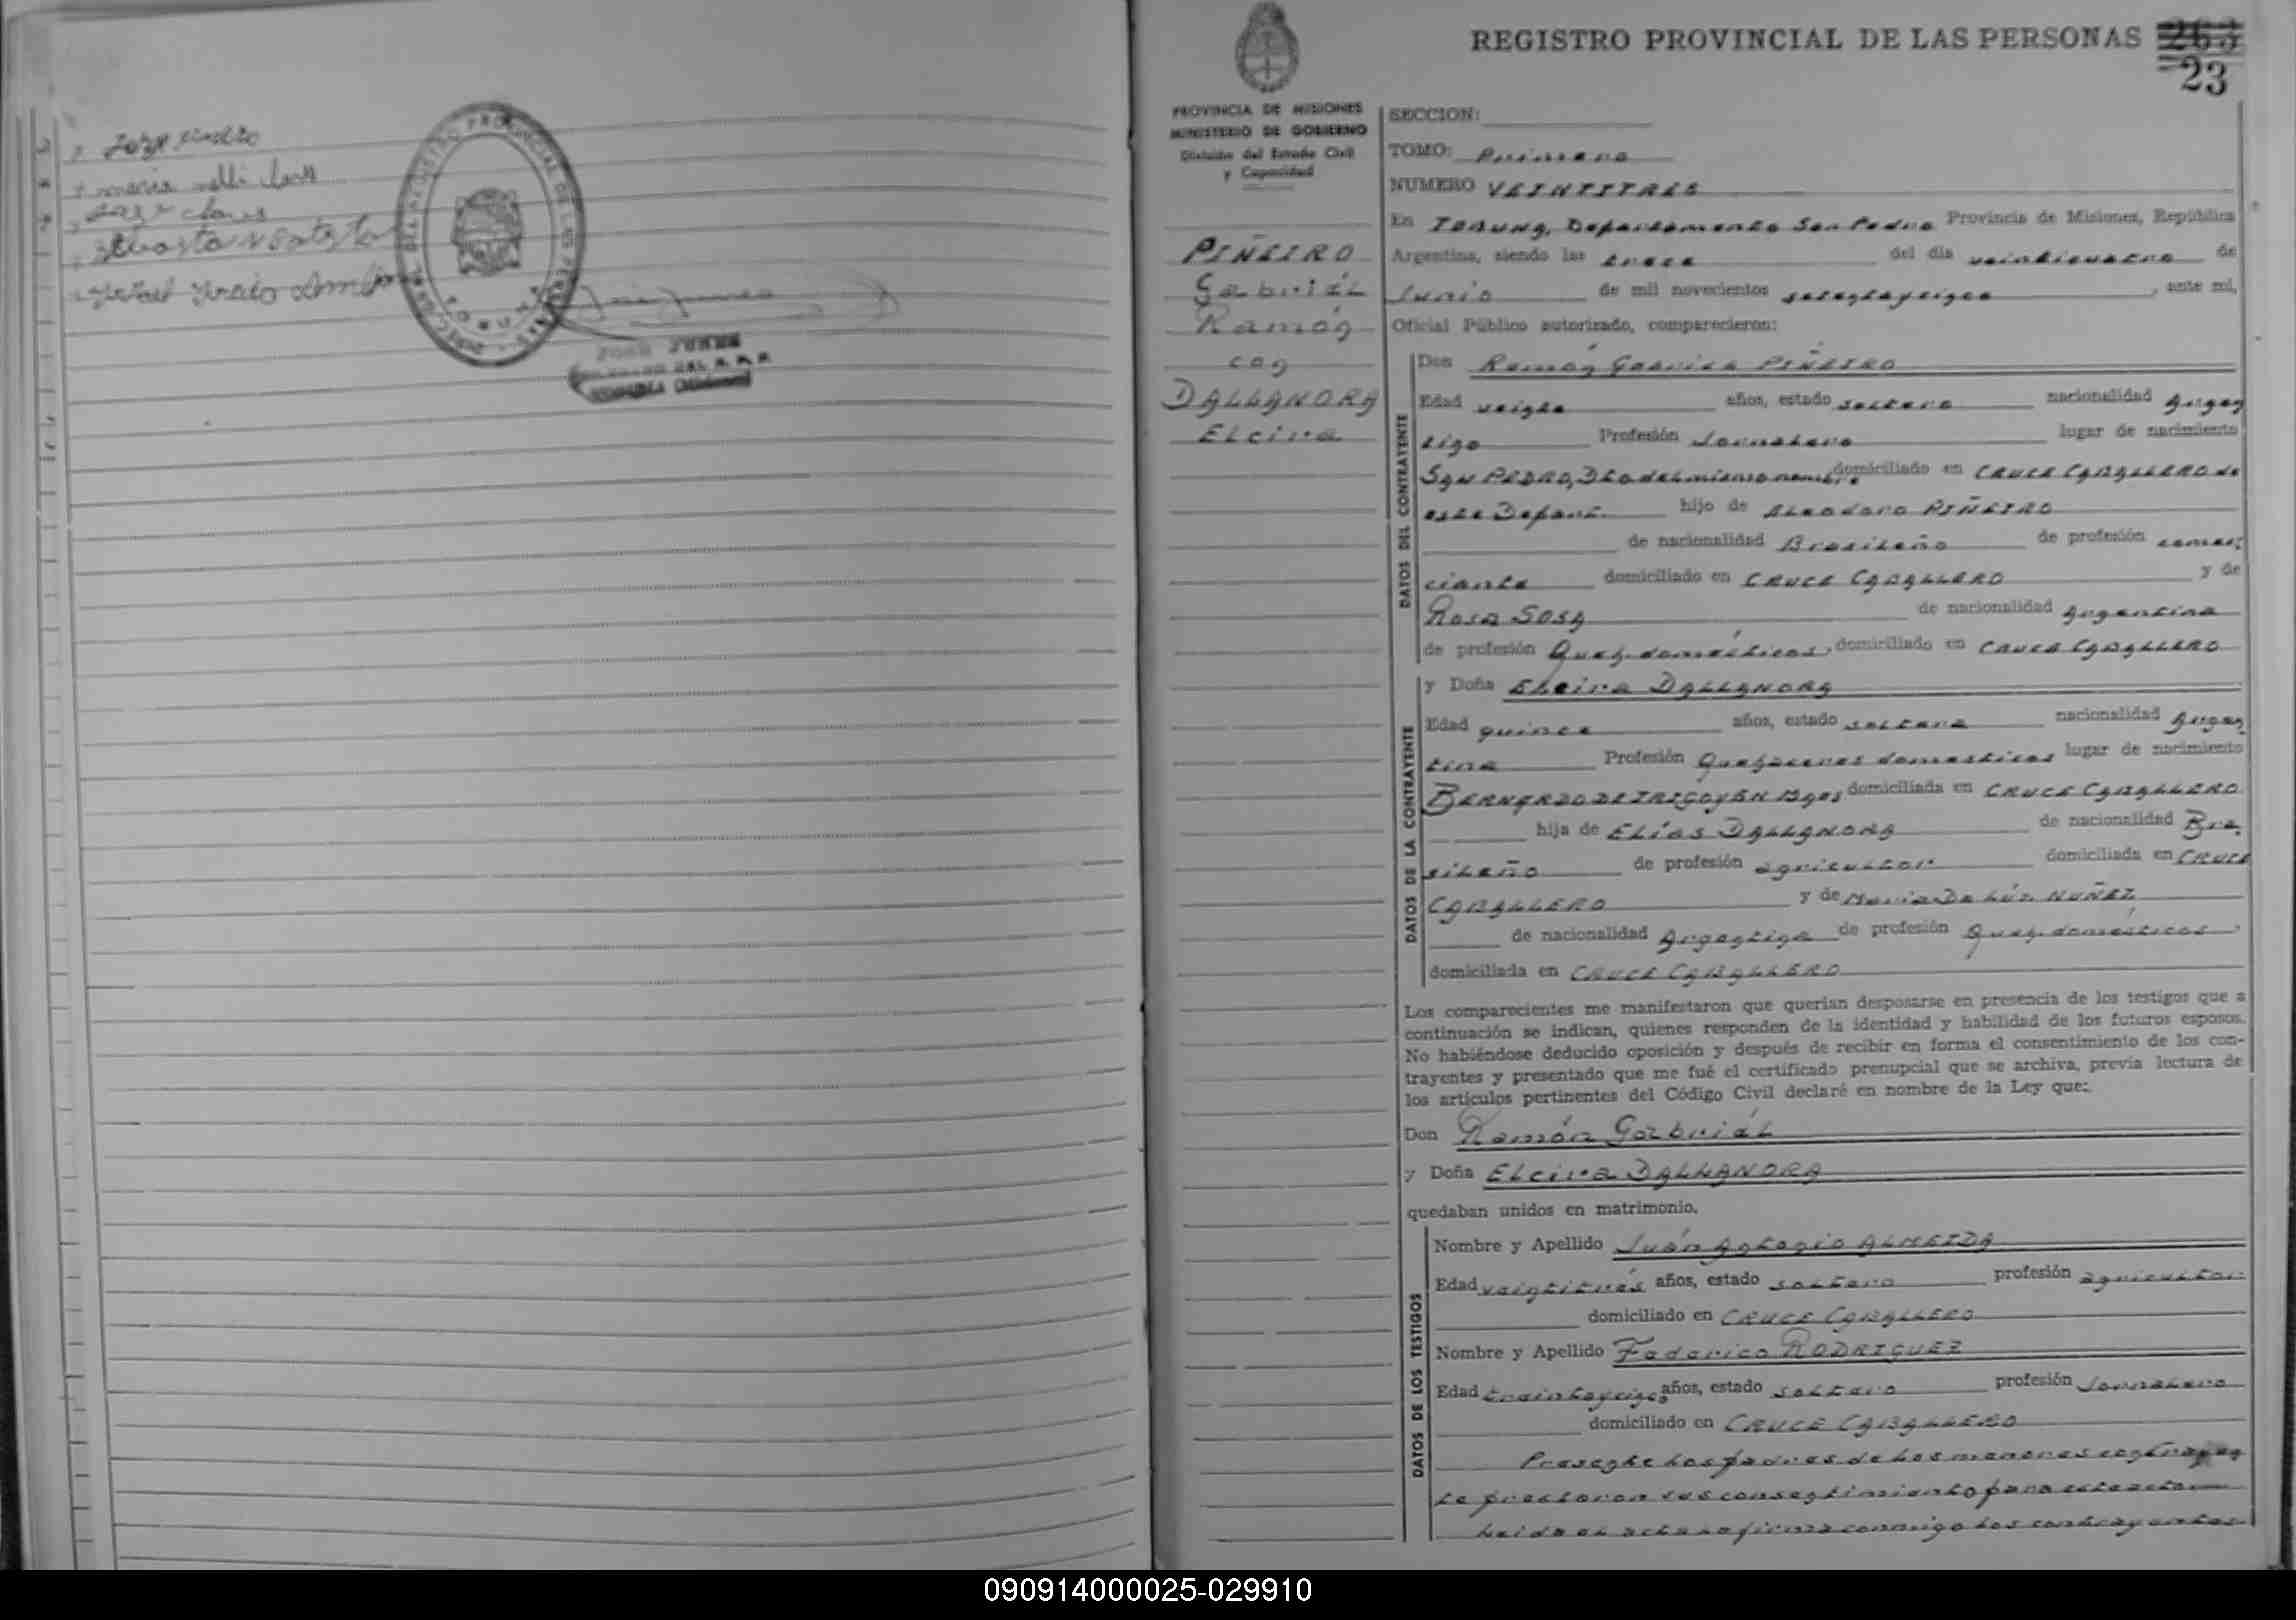 Jorge
maria nelli
REGISTRO PROVINCIAL DE LAS PERSONAS
263
23
PROVINCIA DE MISIONES
MINISTERIO DE GOBIERNO
División del Estado Civil
y Capacidad
PIÑEIRO
Gabriél
Ramón
con
DALLANORA
Elcira
SECCION:
TOMO: Primero
NUMERO VEINTITRES
En TOBUNA, Departamento San Pedro Provincia de Misiones, República
Argentina, siendo las trece del día veinticuatro de
Junio de mil novecientos setentaycinco, ante mi,
Oficial Público autorizado, comparecieron:
DATOS DEL CONTRAYENTE
Don Ramón Gabriel PIÑEIRO
Edad veinte años, estado soltero nacionalidad Argen
tino Profesión Jornalero lugar de nacimiento
SAN PEDRO, Dto del mismo nombre domiciliado en CRUCE CABALLERO de
este Depart. hijo de Aleodoro PIÑEIRO
de nacionalidad Brasileño de profesión comer
ciante domiciliado en CRUCE CABALLERO y de
Rosa SOSA de nacionalidad Argentina
de profesión Queh. domésticos, domiciliado en CRUCE CABALLERO
DATOS DE LA CONTRAYENTE
y Doña Elcira DALLANORA
Edad quince años, estado soltera nacionalidad Argen
tina Profesión Quehaceres domesticos lugar de nacimiento
BERNARDO DE IRIGOYEN Mnes domiciliada en CRUCE CABALLERO
hija de ELías DALLANORA de nacionalidad Bra
sileño de profesión agricultor domiciliada en CRUCE
CABALLERO y de María De Lúz NUÑEZ
de nacionalidad Argentina de profesión Queh. domésticos
domiciliada en CRUCE CABALLERO
Los comparecientes me manifestaron que querían desposarse en presencia de los testigos que a
continuación se indican, quienes responden de la identidad y habilidad de los futuros esposos.
No habiéndose deducido oposición y después de recibir en forma el consentimiento de los con-
trayentes y presentado que me fué el certificado prenupcial que se archiva, previa lectura de
los artículos pertinentes del Código Civil declaré en nombre de la Ley que:
Don Ramón Gabriél
y Doña Elcira DALLANORA
quedaban unidos en matrimonio.
DATOS DE LOS TESTIGOS
Nombre y Apellido Juán Antonio ALMEIDA
Edad veintitrés años, estado soltero profesión agricultor
domiciliado en CRUCE CABALLERO
Nombre y Apellido Federico RODRIGUEZ
Edad treintaycinco años, estado soltero profesión Jornalero
domiciliado en CRUCE CABALLERO
Presente los padres de los menores contrayen
te prestaron sus consentimiento para este acto
Leida el acta la firma conmigo los contrayentes
090914000025-029910